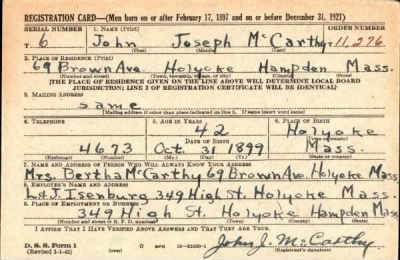 REGISTRATION CARD—(Men born on or after February 17, 1897 and on or before December 31, 1921)
SERIAL NUMBER 1. NAME (Print) ORDER NUMBER
T 6 John Joseph McCarthy T 11,276
(First) (Middle) (Last)
2. PLACE OF RESIDENCE (Print)
69 Brown Ave. Holyoke Hampden Mass.
(Number and street) (Town, township, village, or city) (County) (State)
[THE PLACE OF RESIDENCE GIVEN ON THE LINE ABOVE WILL DETERMINE LOCAL BOARD
JURISDICTION; LINE 2 OF REGISTRATION CERTIFICATE WILL BE IDENTICAL]
3. MAILING ADDRESS
same
[Mailing address if other than place indicated on line 2. If same insert word same]
4. TELEPHONE 5. AGE IN YEARS 6. PLACE OF BIRTH
42 Holyoke
DATE OF BIRTH (Town or county)
4673 Oct. 31 1899 Mass.
(Exchange) (Number) (Mo.) (Day) (Yr.) (State or country)
7. NAME AND ADDRESS OF PERSON WHO WILL ALWAYS KNOW YOUR ADDRESS
Mrs. Bertha McCarthy 69 Brown Ave. Holyoke Mass
8. EMPLOYER'S NAME AND ADDRESS
L.+J. Isenburg 349 High St. Holyoke Mass.
9. PLACE OF EMPLOYMENT OR BUSINESS
349 High St. Holyoke Hampden Mass.
(Number and street or R. F. D. number) (Town) (County) (State)
I AFFIRM THAT I HAVE VERIFIED ABOVE ANSWERS AND THAT THEY ARE TRUE.
D. S. S. Form 1
(Revised 1-1-42) GPO 16—21630-1 John J. McCarthy
(Registrant's signature)